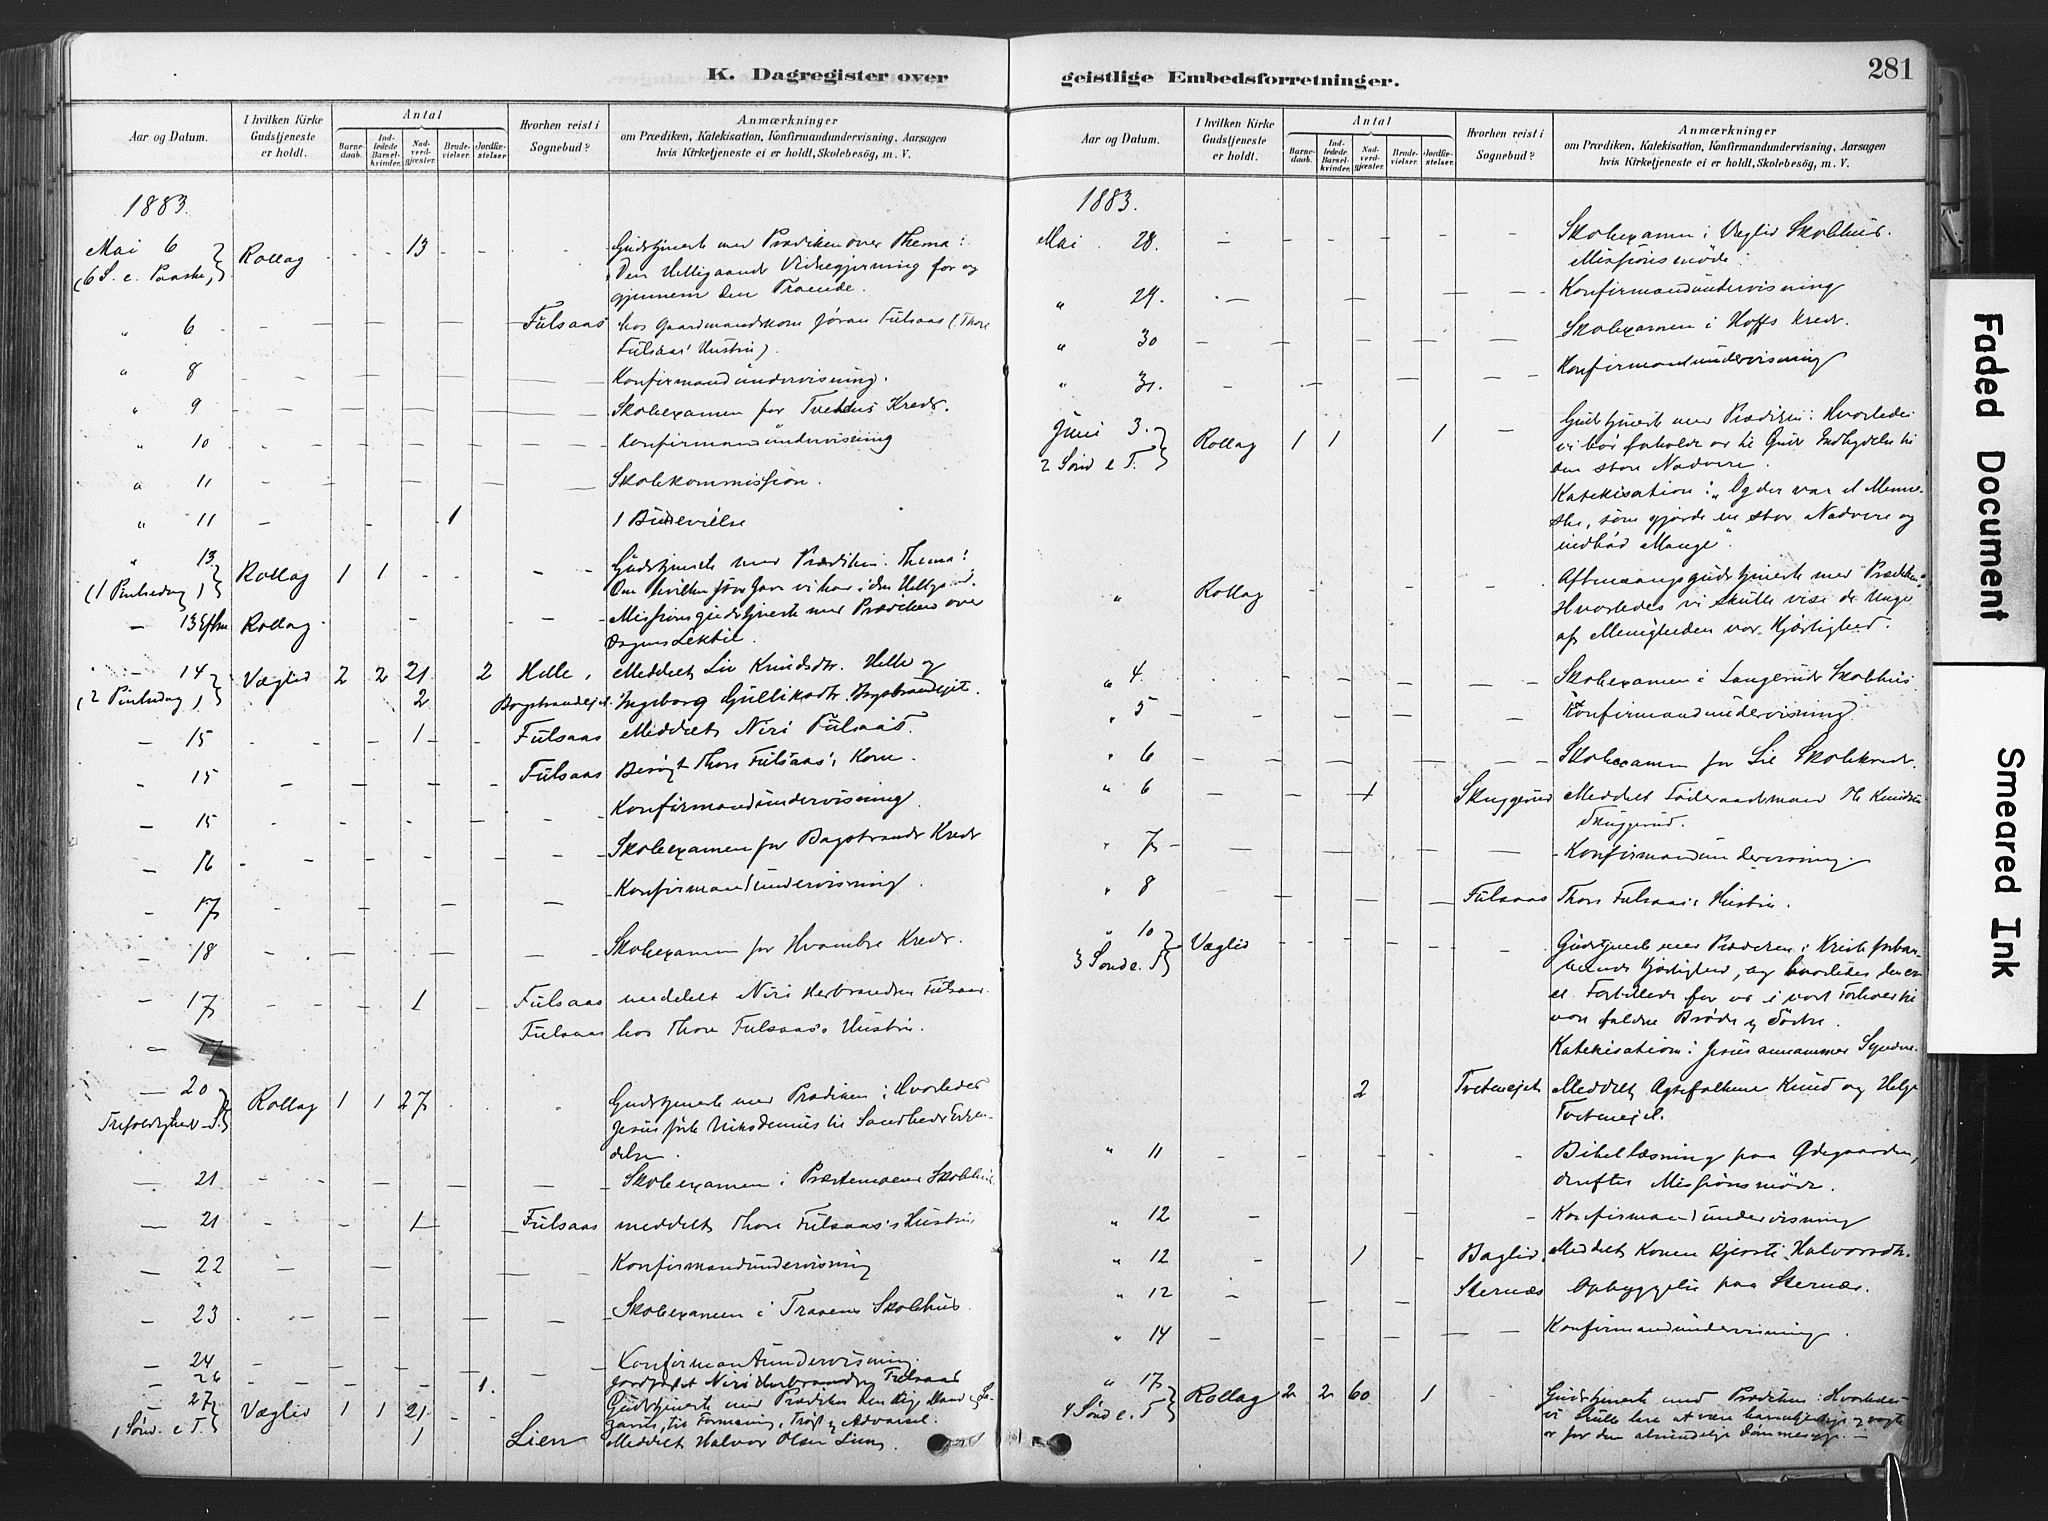 K. Dagregister over
Aar og Datum.
I hvilken Kirke
Gudstjeneste
er holdt.
Antal
Barne-
daab.
Ind-
ledede
Barsel-
kvinder.
Nad-
verd-
gjæster.
Brude-
vielser.
Jordfæ-
stelser.
Hvorhen reist i
Sognebud?
Anmærkninger
om Prædiken, Katekisation, Konfirmandundervisning, Aarsagen
hvis Kirketjeneste ei er holdt, Skolebesög, m. V.
1883.
Mai 6 Rollag 13 Gudstjeneste med Prædiken over Thema:
(6 S. e. Paaske) "Den Helligaands Virkegjerning for og
gjennem den Troende.
" 6 Fulsaas hos Gaardmandskone Jøran Fulsaas (Thore
Fulsaas' Hustru).
" 8 Konfirmandundervisning.
" 9 Skolexamen for Kreds.
" 10 Konfirmandundervisning
" 11 Skolekommission.
" 11 1 1 Brudevielse
" 13 Rollag 1 1 Gudstjeneste med Prædiken. Thema:
(1 Pintsedag) Om hvilken vi har i den Hellig
— 13 Eftm Rollag Missionsgudstjeneste med Prædiken over
Dagens Lektie.
— 14 Væglid 2 2 21 2 Helle, Meddelt Liv Knudsdtr. Helle og
(2 Pintsedag) 2 Bogstrandejet. Ingeborg Gulliksdtr. Bogstrandejet.
— 15 1 Fulsaas Meddelt Niri Fulsaas.
15 Fulsaas Besøgt Thore Fulsaas's Kone.
— 15 Konfirmandundervisning.
— 16 Skolexamen for Bogstrands Kreds
— 17 Konfirmandundervisning.
— 18 Skolexamen for Kreds.
— 17 1 Fulsaas meddelt Niri Herbrandsen Fulsaas.
— Fulsaas hos Thore Fulsaas's Hustru.
— 20 Rollag 1 1 27 Gudstjeneste med Prædiken: Hvorledes
Trefoldigheds S. Jesus Nikodemus til Sandheds Erkjen-
delse.
— 21 Skolexamen i Præstemoens Skolehus
— 21 1 Fulsaas meddelt Thore Fulsaas's Hustru
— 22 Konfirmandundervisning
— 23 Skolexamen i Traaens Skolehus.
— 24 Konfirmandundervisning.
— 26 1. Jordfæstet Niri Herbrandsen Fulsaas
— 27 Væglid 1 1 21 Gudstjeneste med Prædiken Den rige Mand og La-
1 Sønd. e T. zarus, til Formaning, Trøst og Advarsel.
1 Lien Meddelt Halvor Olsen Lien.
geistlige Embedsforretninger.
281
Aar og Datum.
I hvilken Kirke
Gudstjeneste
er holdt.
Antal
Barne-
daab.
Ind-
ledede
Barsel-
kvinder.
Nad-
verd-
gjæster.
Brude-
vielser.
Jordfæ-
stelser.
Hvorhen reist i
Sognebud?
Anmærkninger
om Prædiken, Katekisation, Konfirmandundervisning, Aarsagen
hvis Kirketjeneste ei er holdt, Skolebesög, m. V.
1883.
Mai 28. Skolexamen i Væglid Skolehus.
Missionsmöde
" 29. Konfirmandundervisning
" 30 Skolexamen i Hoffs Kreds.
" 31. Konfirmandundervisning
Juni 3. Rollag 1 1 1 Gudstjeneste med Prædiken: Hvorledes
2 Sønd e T. vi bör forholde os til Guds Indbydelse til
den store Nadvere.
Katekisation: "Og der var et Menne-
ske, som gjorde en stor Nadvere og
indbød Mange".
" Rollag Aftensangsgudstjeneste med Prædiken:
Hvorledes vi skulle vise de Unge
af Menigheden vor Kjærlighed.
" 4. Skolexamen i Langeruds Skolehus.
" 5 Konfirmandundervisning
" 6 Skolexamen for Lie Skolekreds.
" 6 1 Skuggerud Meddelt Föderaadsmand Knudsen
Skuggerud.
" 7 Konfirmandundervisning
" 8 Fulsaas Thore Fulsaas's Hustru.
" 10 Væglid Gudstjeneste med Prædiken: Kristi forbar-
3 Sönd e. T. mende Kjærlighed, og hvorledes den er
et Forbillede for os i vort Forhold til
vore faldne Brødre og Söstre.
Katekisation: Jesus annammer Syndere.
2 Tveitenejet Meddelt Ægtefolkene Knud og Helge
Tveitenejet.
" 11 Bibellæsning paa Ødegaarden,
derefter Missionsmöde.
" 12 Konfirmandundervisning
" 12 1 Baglid. Meddelt Konen Kjersti Halvorsdtr.
" 12 Sternæs Opbyggelse paa Sternæs.
" 14 Konfirmandundervisning.
" 17 Rollag 2 2 60 1 Gudstjeneste med Prædiken: Hvorledes
4 Sönd e. T vi skulle lære at være barmhjertige og vogte
os for den almindelige Dömmesyge. —
Faded Document
Smeared Ink